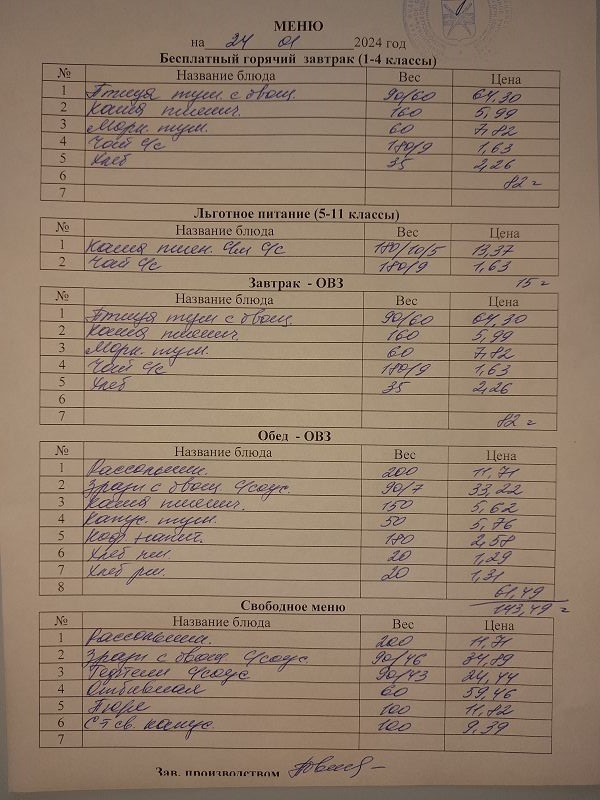 МЕНЮ
на 24 01 2024 год
Бесплатный горячий завтрак (1-4 классы)
№ Название блюда Вес Цена
1 Птица туш. с овощ. 90/60 64,30
2 Каша пшенич. 160 5,99
3 Морк. туш. 60 7,82
4 Чай с/с 180/9 1,63
5 Хлеб 35 2,26
6 82 =
7
Льготное питание (5-11 классы)
№ Название блюда Вес Цена
1 Каша пшен. с/м с/с 180/10/5 13,37
2 Чай с/с 180/9 1,63
15 =
Завтрак - ОВЗ
№ Название блюда Вес Цена
1 Птица туш с овощ. 90/60 64,30
2 Каша пшенич. 160 5,99
3 Морк. туш. 60 7,82
4 Чай с/с 180/9 1,63
5 Хлеб 35 2,26
6
7 82 =
Обед - ОВЗ
№ Название блюда Вес Цена
1 Рассольник. 200 11,71
2 Зразы с овощ. с/соус. 90/7 33,22
3 Каша пшенич. 150 5,62
4 Капус. туш. 50 5,76
5 Коф. напит. 180 2,58
6 Хлеб пш. 20 1,29
7 Хлеб рж. 20 1,31
8 61,49
143,49 =
Свободное меню
№ Название блюда Вес Цена
1 Рассольник. 200 11,71
2 Зразы с овощ с/соус 90/46 34,89
3 Тефтели с/соус 90/43 24,44
4 Отбивная 60 59,46
5 Пюре 100 11,82
6 Ст св. капус. 100 9,39
7
Зав. производством